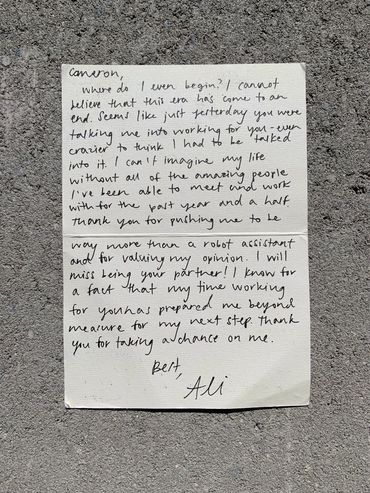 Cameron,
Where do I even begin? I cannot
believe that this era has come to an
end. Seems like just yesterday you were
talking me into working for you-even
crazier to think I had to be talked
into it. I can't imagine my life
without all of the amazing people
I've been able to meet and work
with for the past year and a half
Thank you for pushing me to be
way more than a robot assistant
and for valuing my opinion. I will
miss being your partner! I know for
a fact that my time working
for you has prepared me beyond
measure for my next step. Thank
you for taking a chance on me.
Best,
Ali